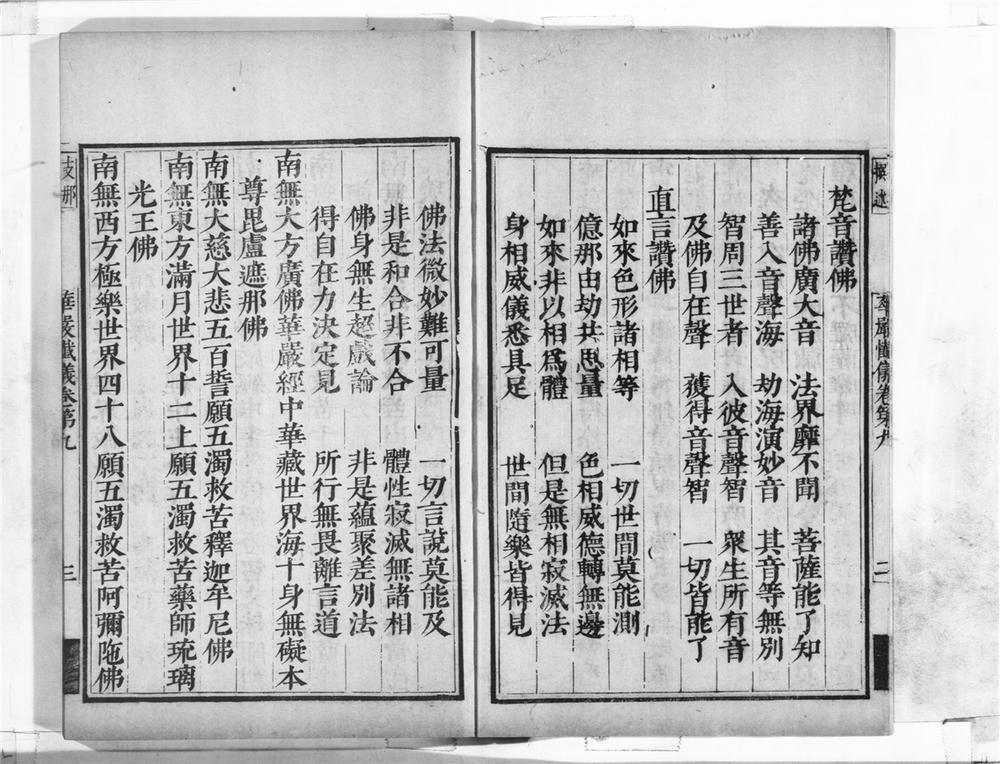 梵音讚佛
諸佛廣大音　法界靡不聞　菩薩能了知
善入音聲海　劫海演妙音　其音等無別
智周三世者　入彼音聲智　衆生所有音
及佛自在聲　獲得音聲智　一切皆能了
直言讚佛
如來色形諸相等　一切世間莫能測
億那由劫共思量　色相威德轉無邊
如來非以相爲體　但是無相寂滅法
身相威儀悉具足　世間隨樂皆得見
佛法微妙難可量　一切言說莫能及
非是和合非不合　體性寂滅無諸相
佛身無生超戲論　非是蘊聚差別法
得自在力決定見　所行無畏離言道
南無大方廣佛華嚴經中華藏世界海十身無礙本
尊毘盧遮那佛
南無大慈大悲五百誓願五濁救苦釋迦牟尼佛
南無東方滿月世界十二上願五濁救苦藥師琉璃
光王佛
南無西方極樂世界四十八願五濁救苦阿彌陁佛
華嚴懺儀卷第九
二
華嚴懺儀卷第九
三